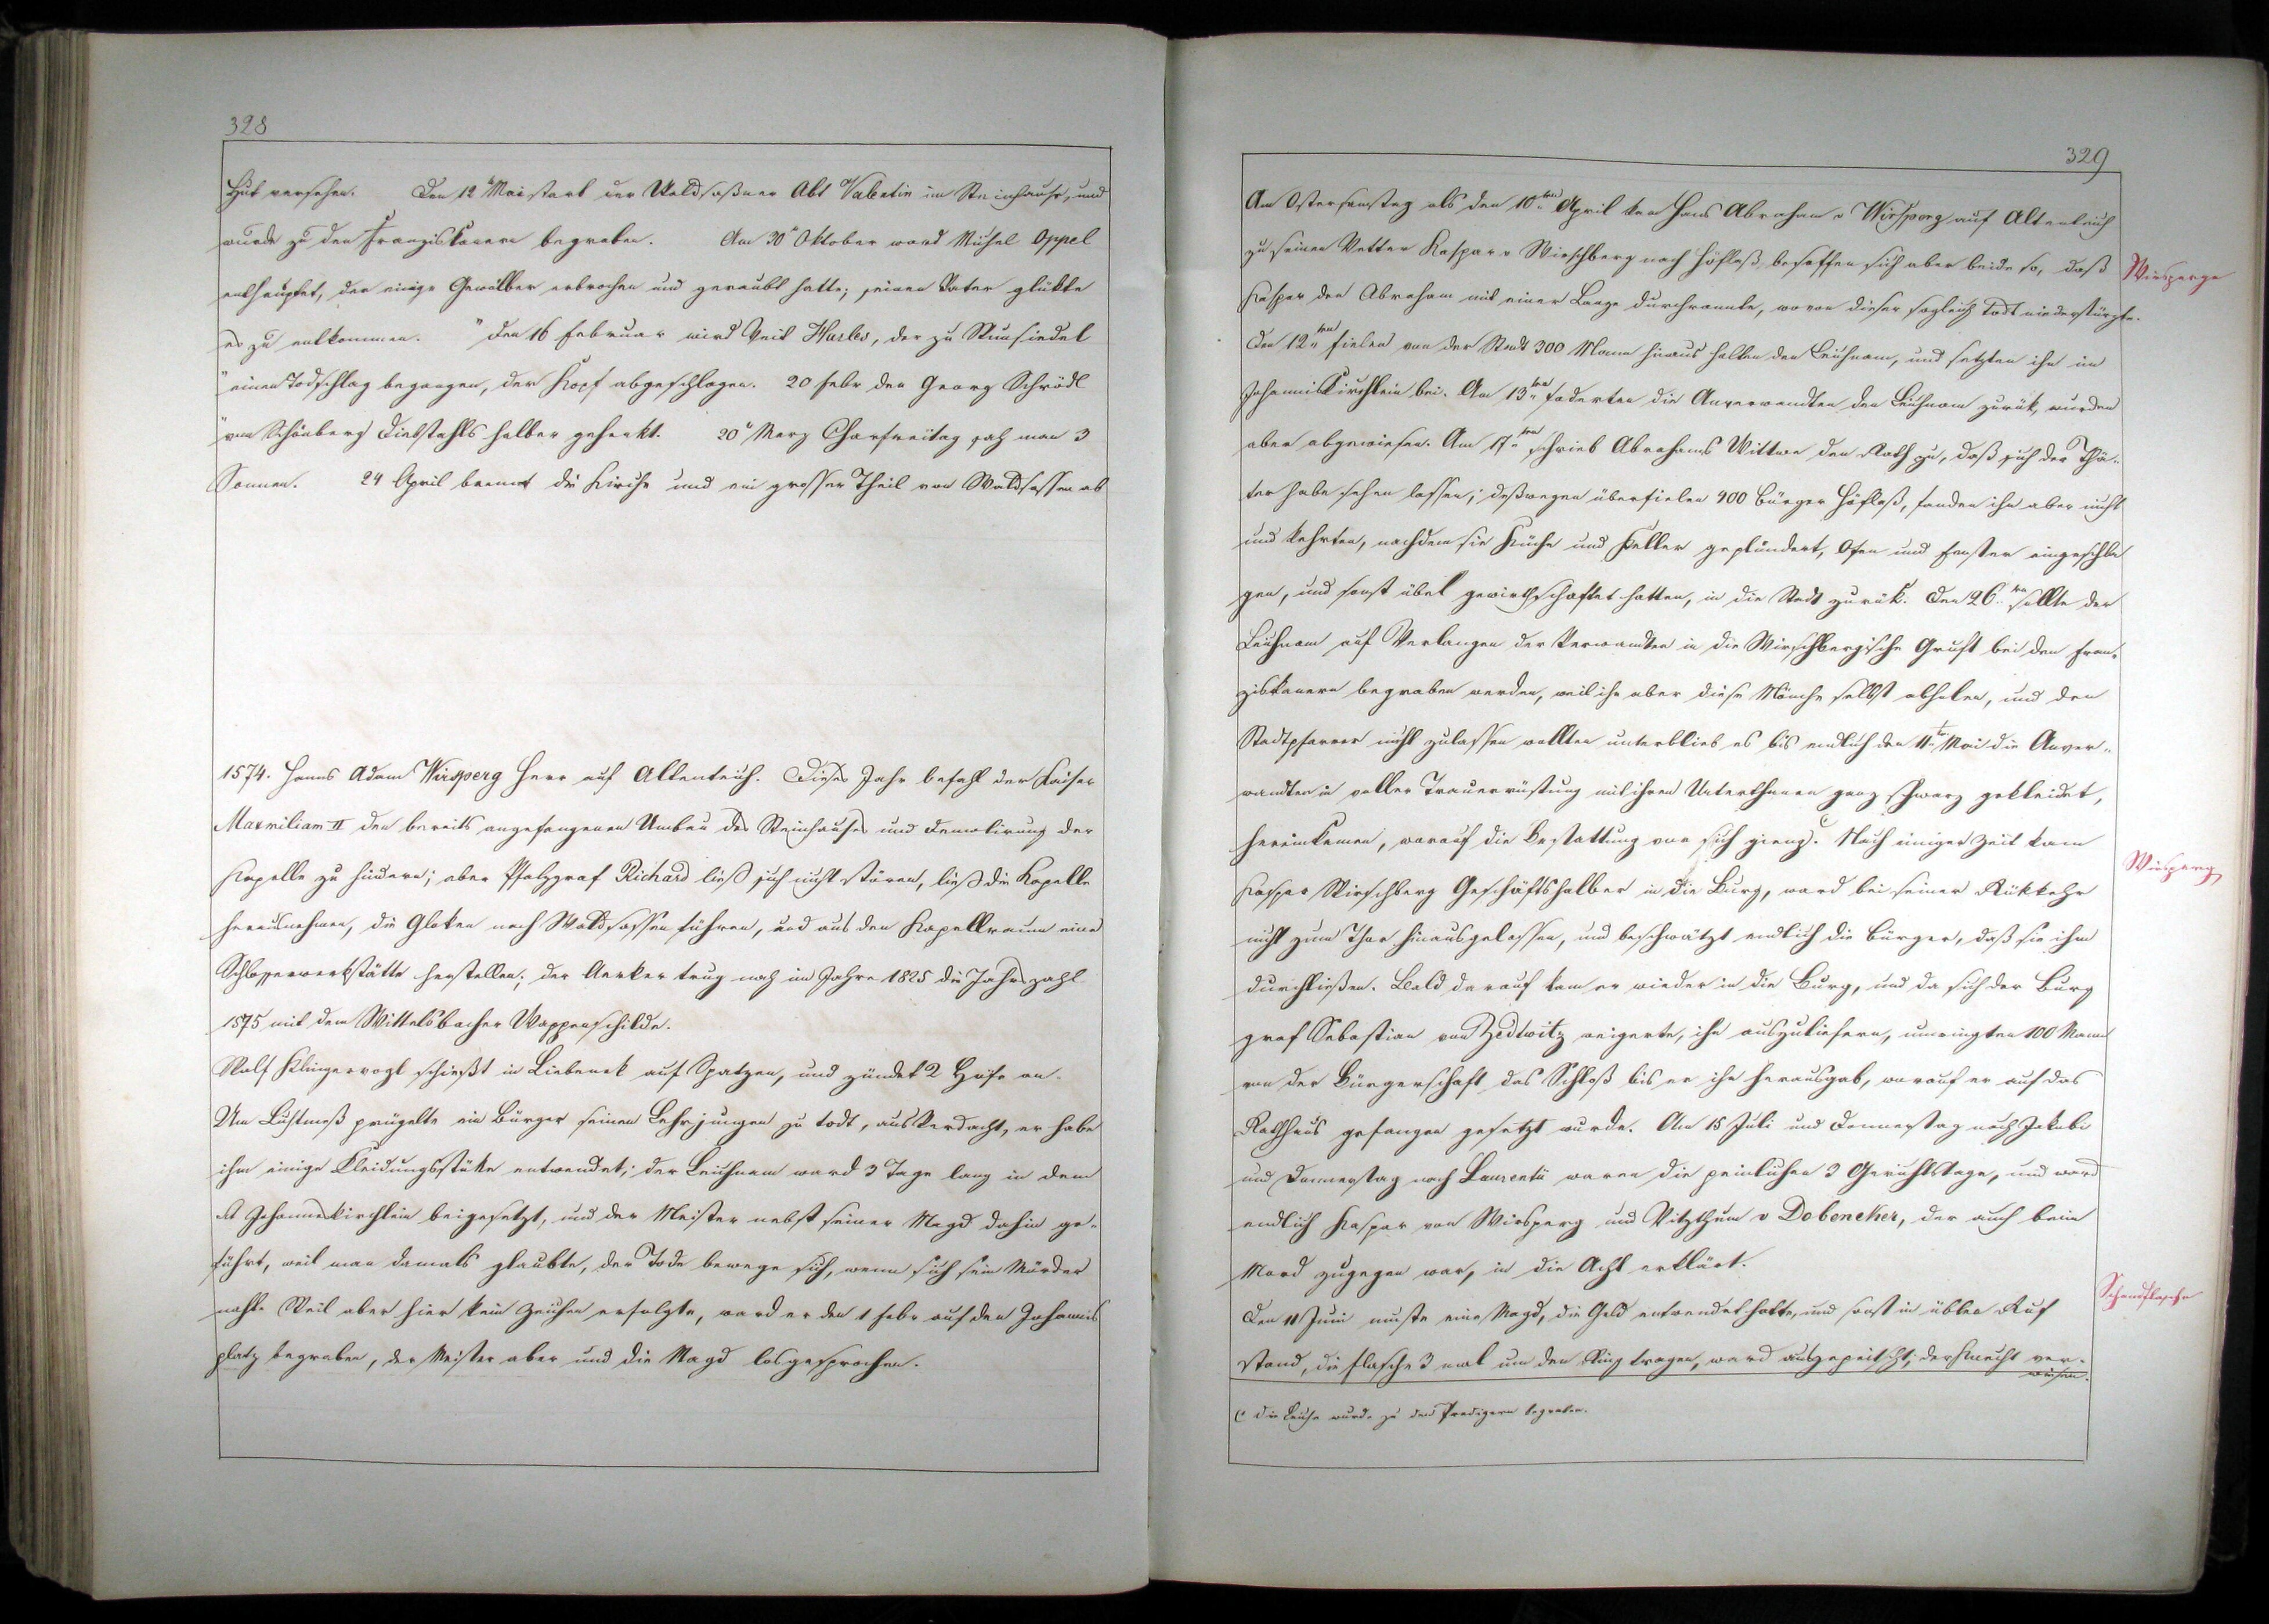 328
Hut versehen. Den 12t Mai starb der Waldsaßner Abt Valentin im Steinhause, und
wurde zu den Franziskanern begraben. Am 30t Oktober ward Michel Oppel
enthauptet, der einige Gewölber erbrochen und geraubt hatte; seinem Vater glükte
es zu entkommen. " Den 16 Februar wird Veit Harles, der zu Wunsiedel
" einen Todschlag begangen, der Kopf abgeschlagen. 20 Febr den Georg Schrödl
" von Schönberg Diebstahls halber gehenkt. 20t Merz Charfreitag sah man 3
Sonnen. 24 April brennt die Kirche und ein grosser Theil von Waldsassen ab
1574. Hanns Adam Wirsperg Herr auf Altenteich. Dieses Jahr befahl der Kaiser
Maxmiliam II den bereits angefangenen Umbau des Steinhauses und Demolirung der
Kapelle zu hindern; aber Pfalzgraf Richard ließ sich nicht stören, ließ die Kapelle
herausnehmen, die Gloken nach Waldsassen führen, und aus dem Kapellraum eine
Schlosserwerkstätte herstellen; der Aerker trug noch im Jahre 1825 die Jahrszahl
1575 mit dem Wittelsbacher Wappenschilde.
Wolf Klingervogt schießt in Liebenek auf Spatzen, und zündet 2 Höfe an.
Um Lichtmeß prügelte ein Bürger seinen Lehrjungen zu todt, aus Verdacht, er habe
ihm einige Kleidungsstüke entwendet; der Leichnam ward 3 Tage lang in dem
St Johanneskirchlein beigesetzt, und der Meister nebst seiner Magd dahin ge-
führt, weil man damals glaubte, der Tode bewege sich, wenn sich sein Mörder
nahte. Weil aber hier kein Zeichen erfolgte, ward er den 1 Febr auf den Johannis
platz begraben, der Meister aber und die Magd losgesprochen.
329
Am Ostersamstag als den 10ten April kam Hans Abraham v Wirsperg auf Altenteich
zu seinem Vetter Kaspar v Wirschberg nach Höflaß, besoffen sich aber beide so, daß
Wirsperge
Kaspar den Abraham mit einer Lanze durchrannte, wovon dieser sogleich todt niederstürzte.
Den 12ten fielen von der Stadt 300 Mann hinaus holten den Leichnam, und setzten ihn im
Johanniskirchlein bei. Am 13ten foderten die Anverwandten den Leichnam zurük, wurden
aber abgewiesen. Am 17ten schrieb Abrahams Wittwe dem Rath zu, daß sich der Thä-
ter habe sehen lassen; deßwegen überfielen 400 Bürger Höflaß, fanden ihn aber nicht
und kehrten, nachdem sie Küche und Keller geplündert, Ofen und Fenster eingeschla
gen, und sonst übel gewirthschaftet hatten, in die Stadt zurük. Den 26ten sollte der
Leichnam auf Verlangen der Verwandten in die Wirschbergische Gruft bei den Fran-
ziskanern begraben werden, weil ihn aber diese Mönche selbst abholen, und den
Stadtpfarrer nicht zulassen wollten unterblieb es bis endlich den 11ten Mai die Anver-
wandten in voller Trauerrüstung mit ihren Unterthanen ganz schwarz gekleidet,
hereinkamen, worauf die Bestattung vor sich gieng. (c Nach einiger Zeit kam
Wirsperg
Kaspar Wirschberg Geschäftshalber in die Burg, ward bei seiner Rükkehr
nicht zum Thor hinausgelassen, und beschwätzt endlich die Bürger, daß sie ihn
durchließen. Bald darauf kam er wieder in die Burg, und da sich der Burg
graf Sebastian von Zedtwitz weigerte, ihn auszuliefern, umringten 100 Mann
von der Bürgerschaft das Schloß bis er ihn herausgab, worauf er auf das
Rathhaus gefangen gesetzt wurde. Am 15 Juli und Donnerstag nach Jakobi
und Donnerstag nach Laurentii waren die peinlichen 3 Gerichtstage, und ward
endlich Kaspar von Wirsperg und Vitzthum v Dobeneker, der auch beim
Mord zugegen war, in die Acht erklärt.
Schandflasche
Den 11 Juni muste eine Magd, die Geld entwendet hatte, und sonst in üblen Ruf
stand, die Flasche 3 mal um den Ring tragen, ward ausgepeitscht; der Knecht ver-
wiesen.
(c Die Leiche wurde zu den Predigern begraben.